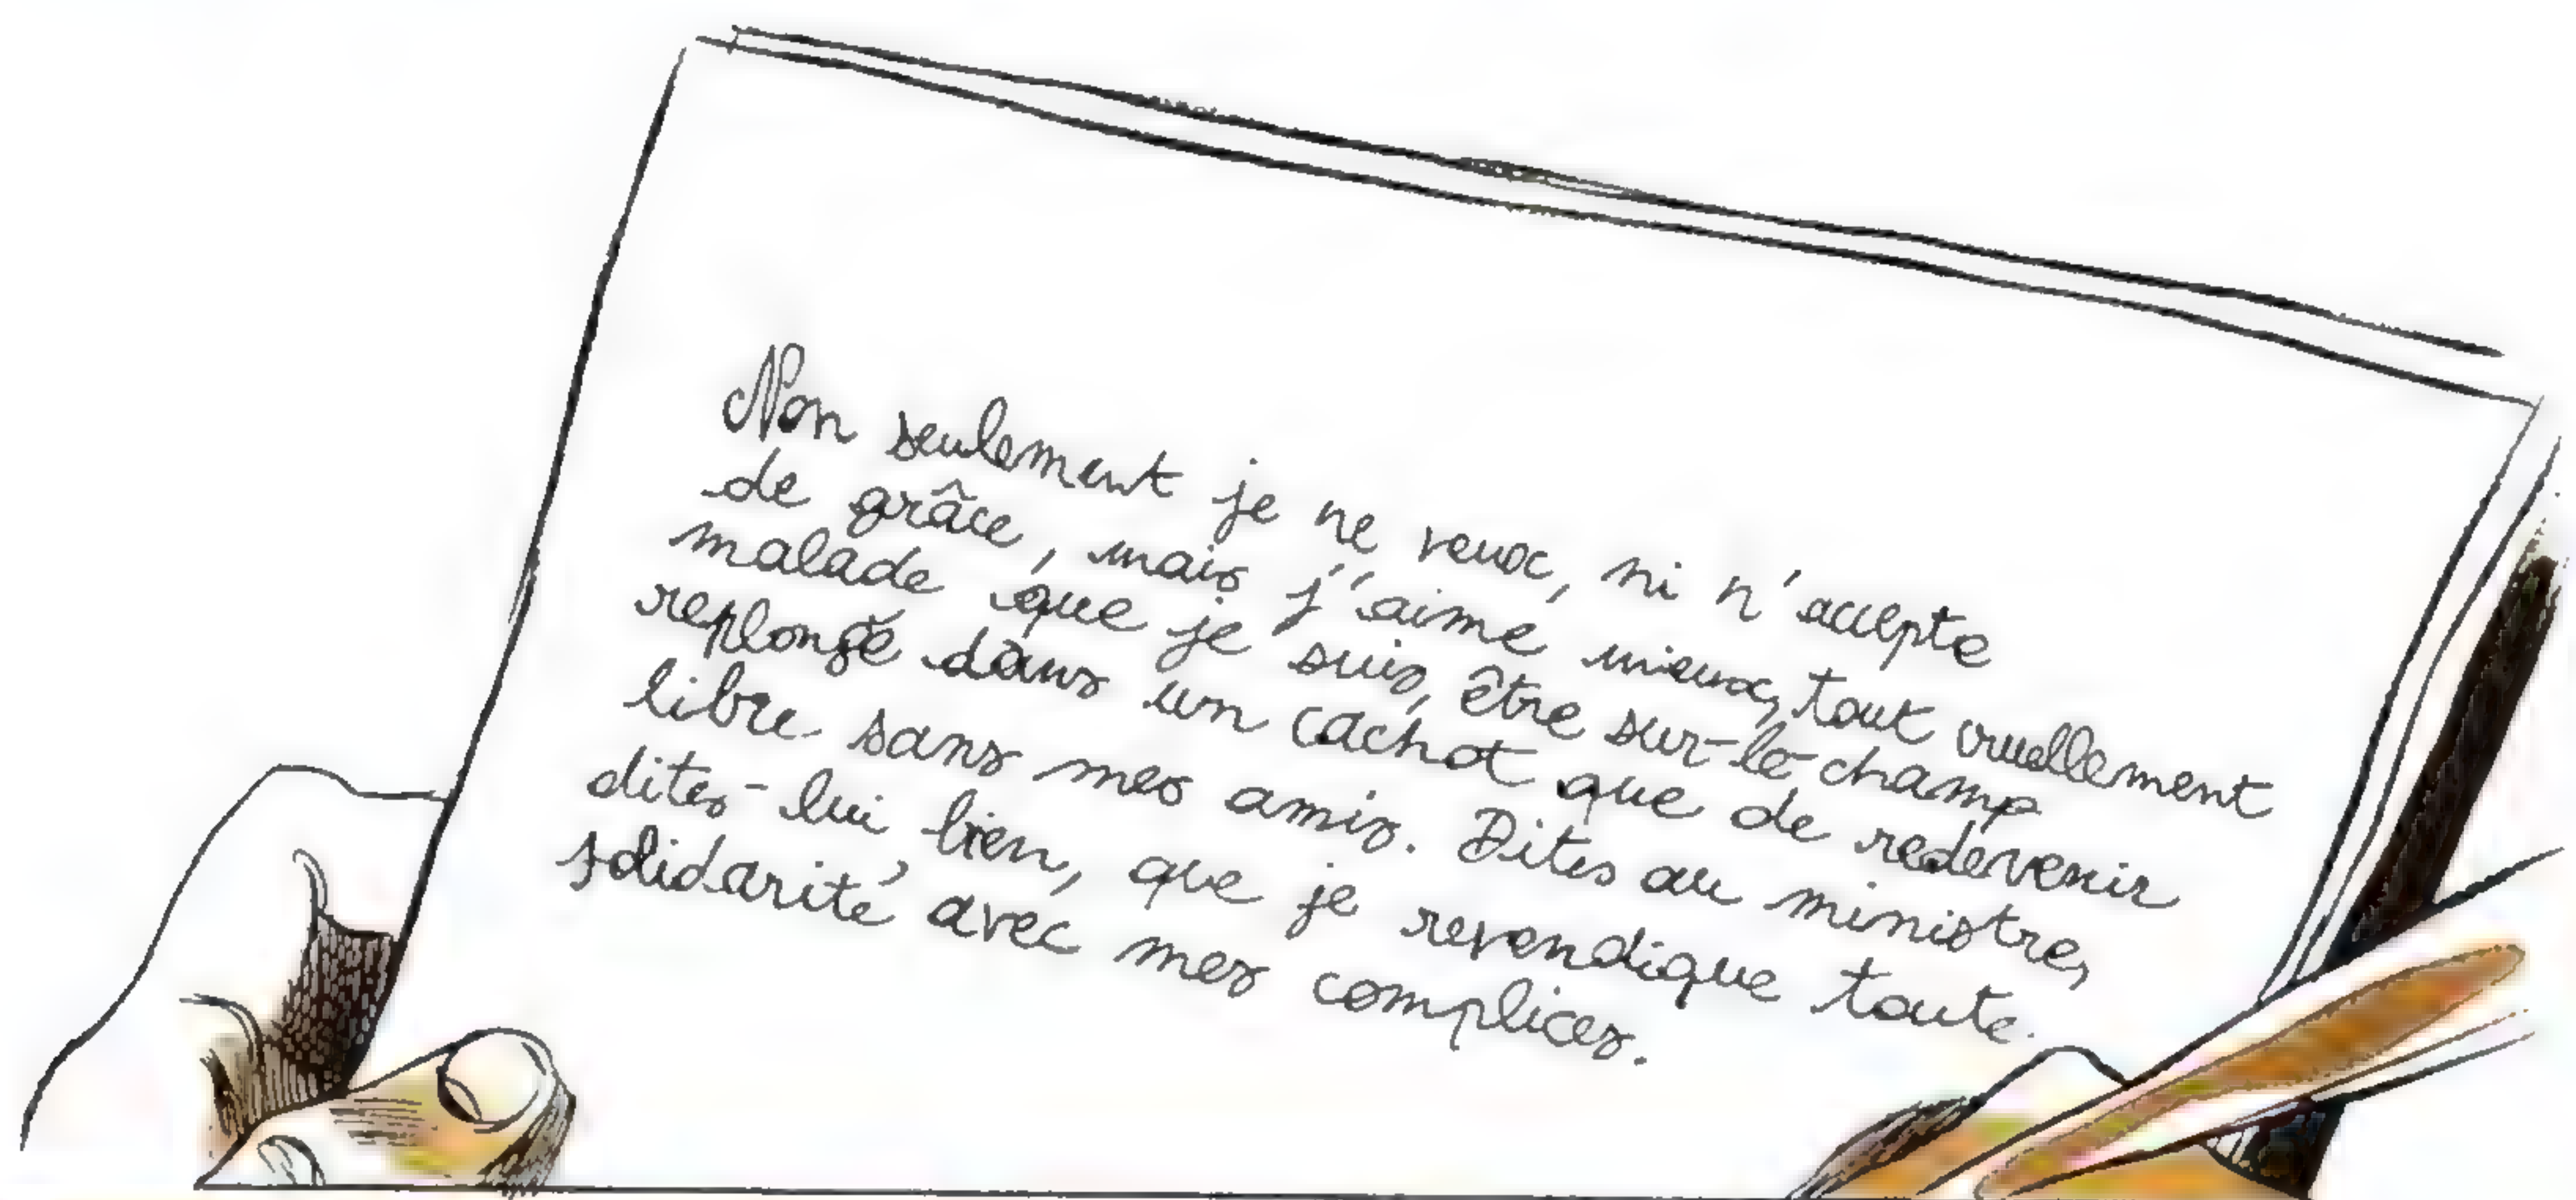 Non seulement je ne veux, ni n'accepte
de grâce, mais j'aime mieux, tout cruellement
malade que je suis, être sur-le-champ
replongé dans un cachot que de redevenir
libre sans mes amis. Dites au ministre,
dites-lui bien, que je revendique toute
solidarité avec mes complices.